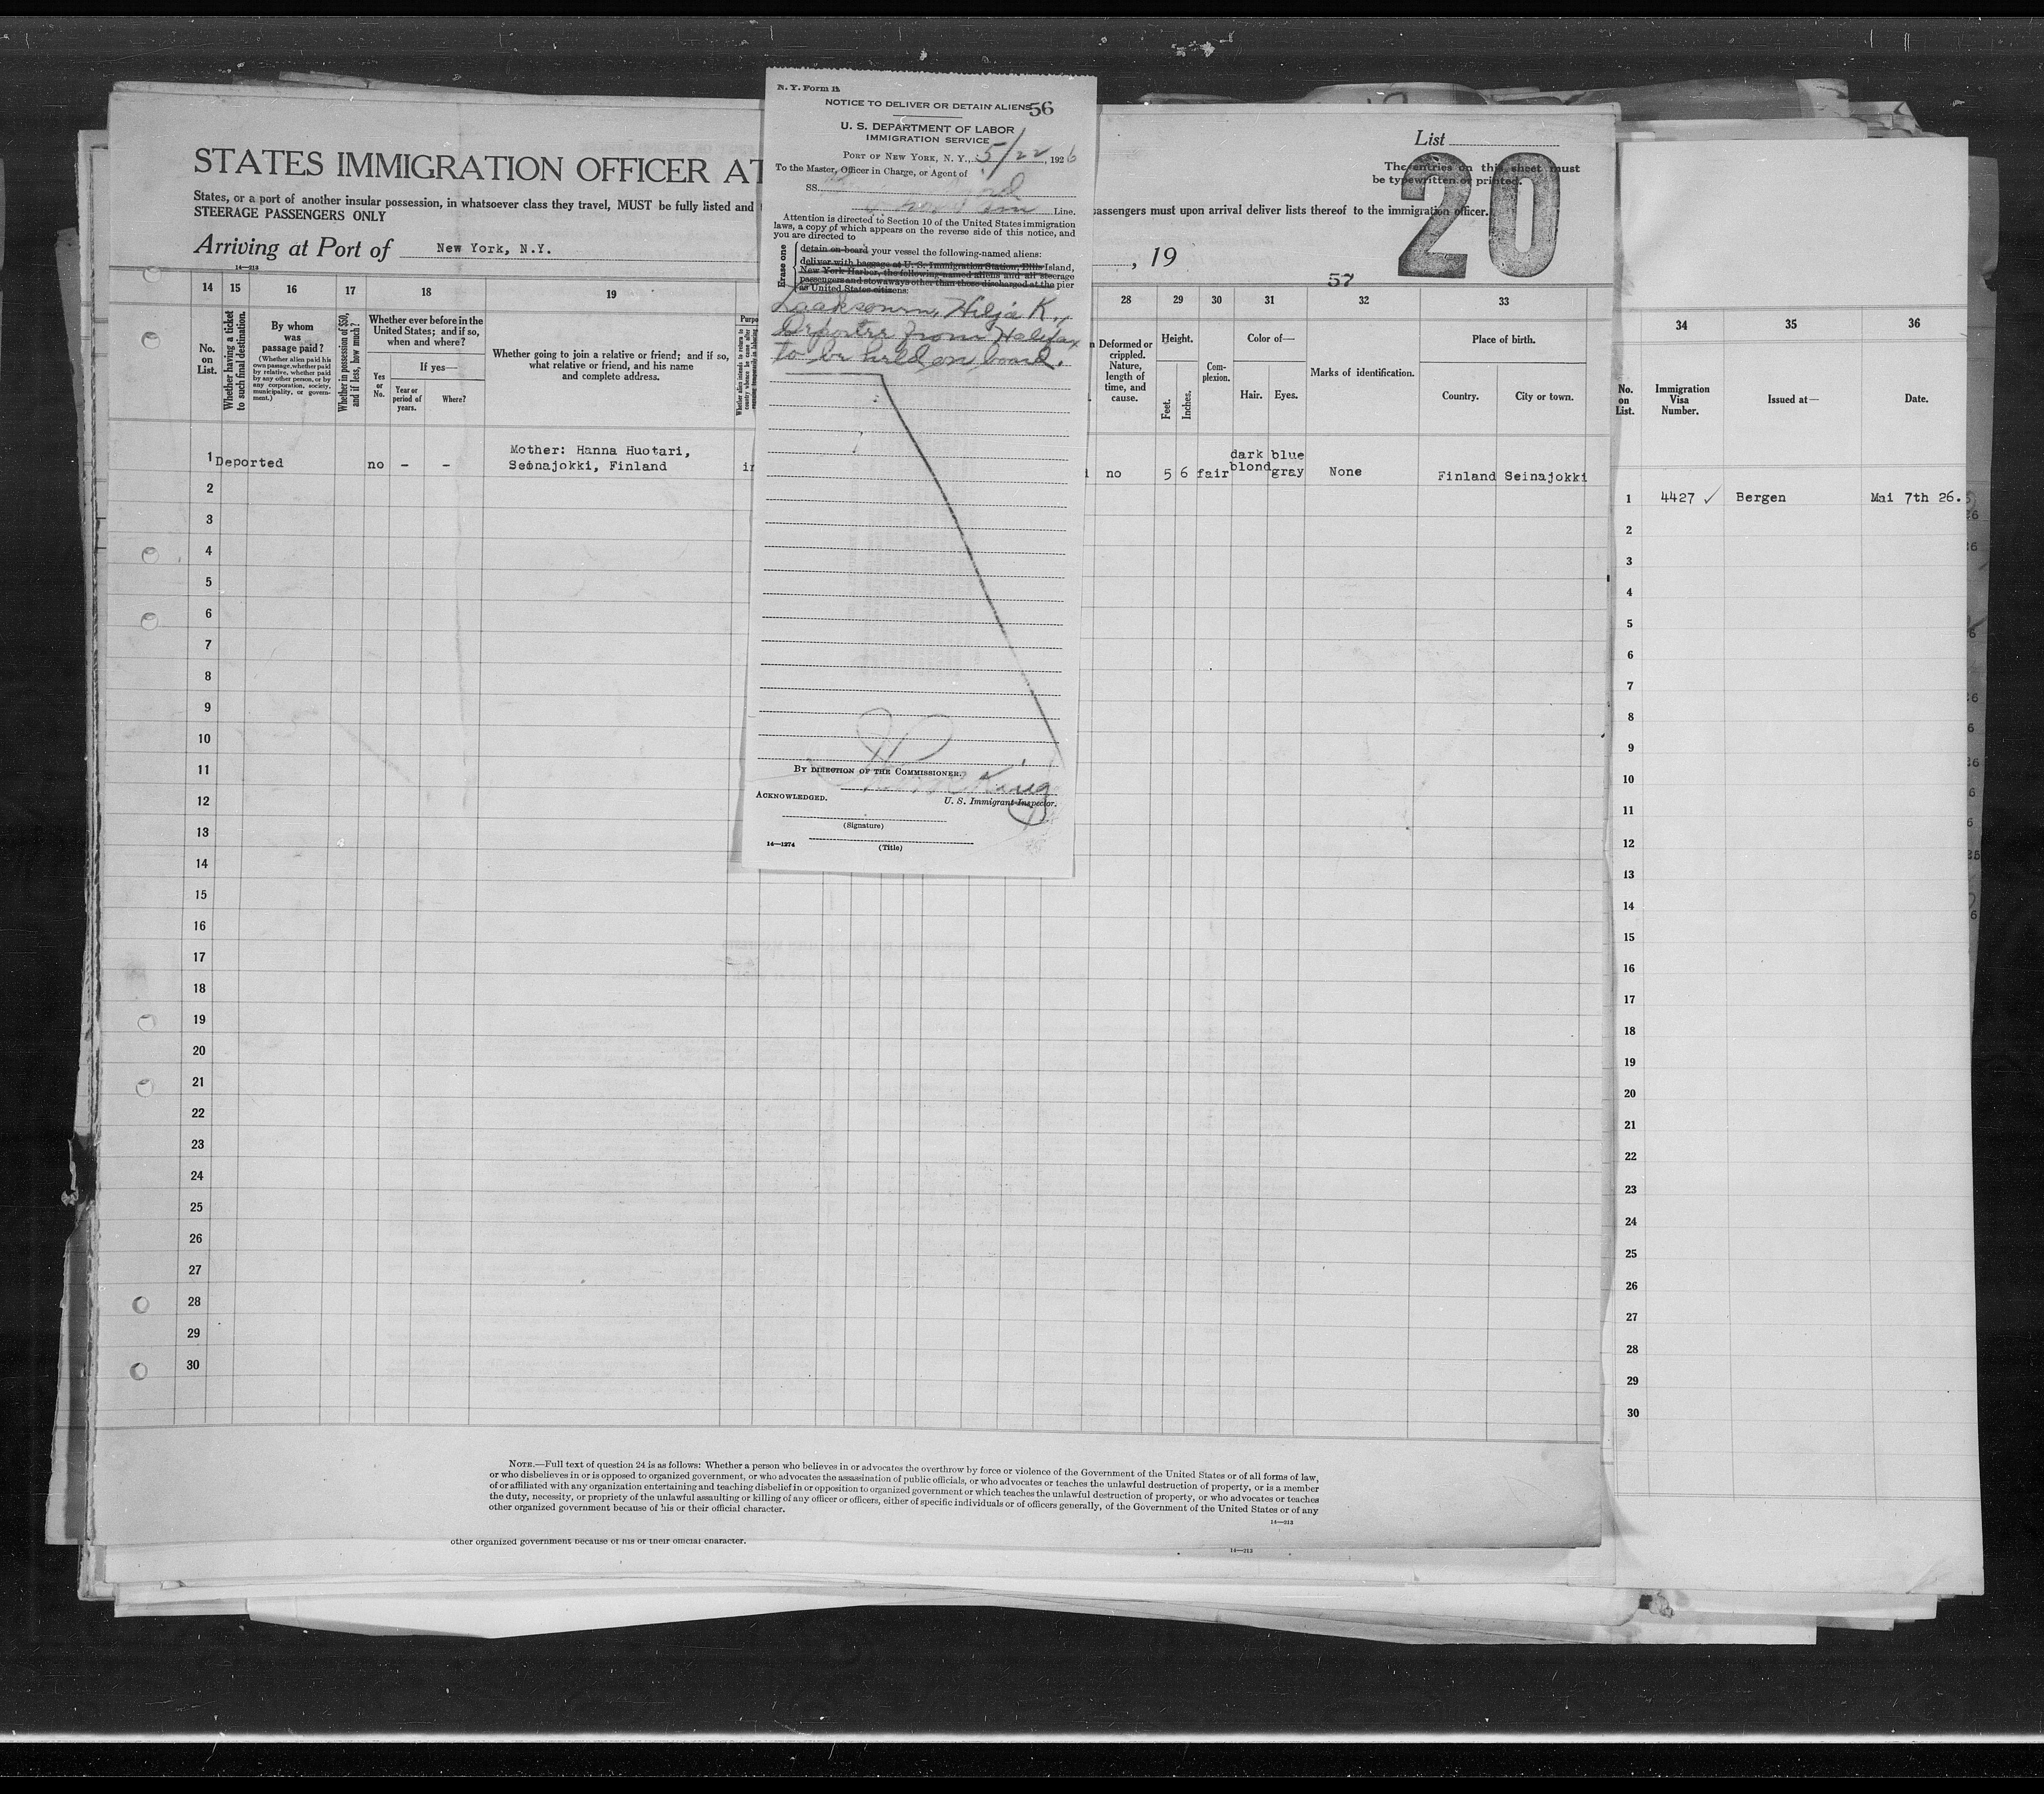 N. Y. Form
NOTICE TO DELIVER OR DETAIN ALIENS
56
U. S. DEPARTMENT OF LABOR
IMMIGRATION SERVICE
PORT OF NEW YORK, N. Y., 5/22, 1926
To the Master, Officer in Charge, or Agent of
SS.
Line.
Attention is directed to Section 10 of the United States immigration
laws, a copy of which appears on the reverse side of this notice, and
you are directed to
Erase one
detain on board your vessel the following-named aliens:
deliver with baggage at U. S. Immigration Station, Ellis Island,
New York Harbor, the following-named aliens and all steerage
passengers and stowaways other than those discharged at the pier
as United States citizens:
Hilja K.,
from Halifax
to be held on board.
BY DIRECTION OF THE COMMISSIONER.
ACKNOWLEDGED.
U. S. Immigrant Inspector.
(Signature)
14—1274
(Title)
STATES IMMIGRATION OFFICER AT
List
20
The entries on this sheet must
be typewritten or printed.
States, or a port of another insular possession, in whatsoever class they travel, MUST be fully listed and
passengers must upon arrival deliver lists thereof to the immigration officer.
STEERAGE PASSENGERS ONLY
Arriving at Port of New York, N.Y.
, 19
14—213
57
14 15 16 17 18 19 28 29 30 31 32 33
No. on List.
Whether having a ticket to such final destination.
By whom was passage paid?
(Whether alien paid his own passage, whether paid by relative, whether paid by any other person, or by any corporation, society, municipality, or government.)
Whether in possession of $50, and if less, how much?
Whether ever before in the United States; and if so, when and where?
Yes or No.
If yes—
Year or period of years.
Where?
Whether going to join a relative or friend; and if so, what relative or friend, and his name and complete address.
Purpo
Deformed or crippled. Nature, length of time, and cause.
Height.
Feet. Inches.
Complexion.
Color of—
Hair. Eyes.
Marks of identification.
Place of birth.
Country. City or town.
1 Deported no - - Mother: Hanna Huotari,
Seinajokki, Finland
no 5 6 fair dark blond blue gray None Finland Seinajokki
2
3
4
5
6
7
8
9
10
11
12
13
14
15
16
17
18
19
20
21
22
23
24
25
26
27
28
29
30
NOTE.—Full text of question 24 is as follows: Whether a person who believes in or advocates the overthrow by force or violence of the Government of the United States or of all forms of law,
or who disbelieves in or is opposed to organized government, or who advocates the assassination of public officials, or who advocates or teaches the unlawful destruction of property, or is a member
of or affiliated with any organization entertaining and teaching disbelief in or opposition to organized government or which teaches the unlawful destruction of property, or who advocates or teaches
the duty, necessity, or propriety of the unlawful assaulting or killing of any officer or officers, either of specific individuals or of officers generally, of the Government of the United States or of any
other organized government because of his or their official character.
14—213
other organized government because of his or their official character.
14—213
34 35 36
No. on List.
Immigration Visa Number.
Issued at—
Date.
1 4427 ✓ Bergen Mai 7th 26.
2
3
4
5
6
7
8
9
10
11
12
13
14
15
16
17
18
19
20
21
22
23
24
25
26
27
28
29
30